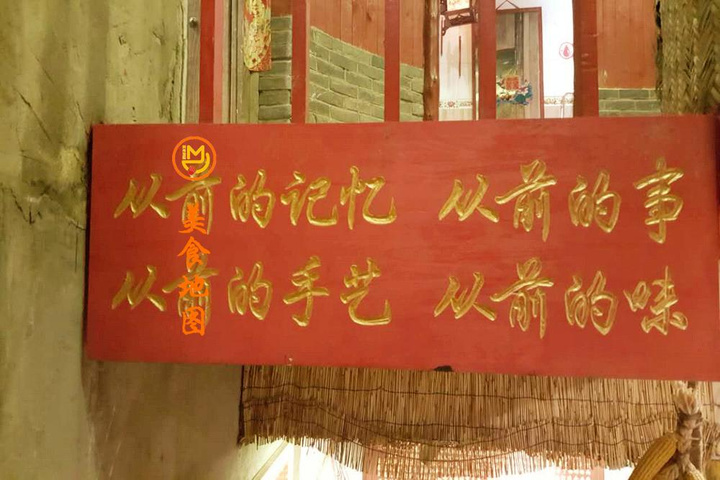 从前的记忆 从前的事
从前的手艺 从前的味
美食地图